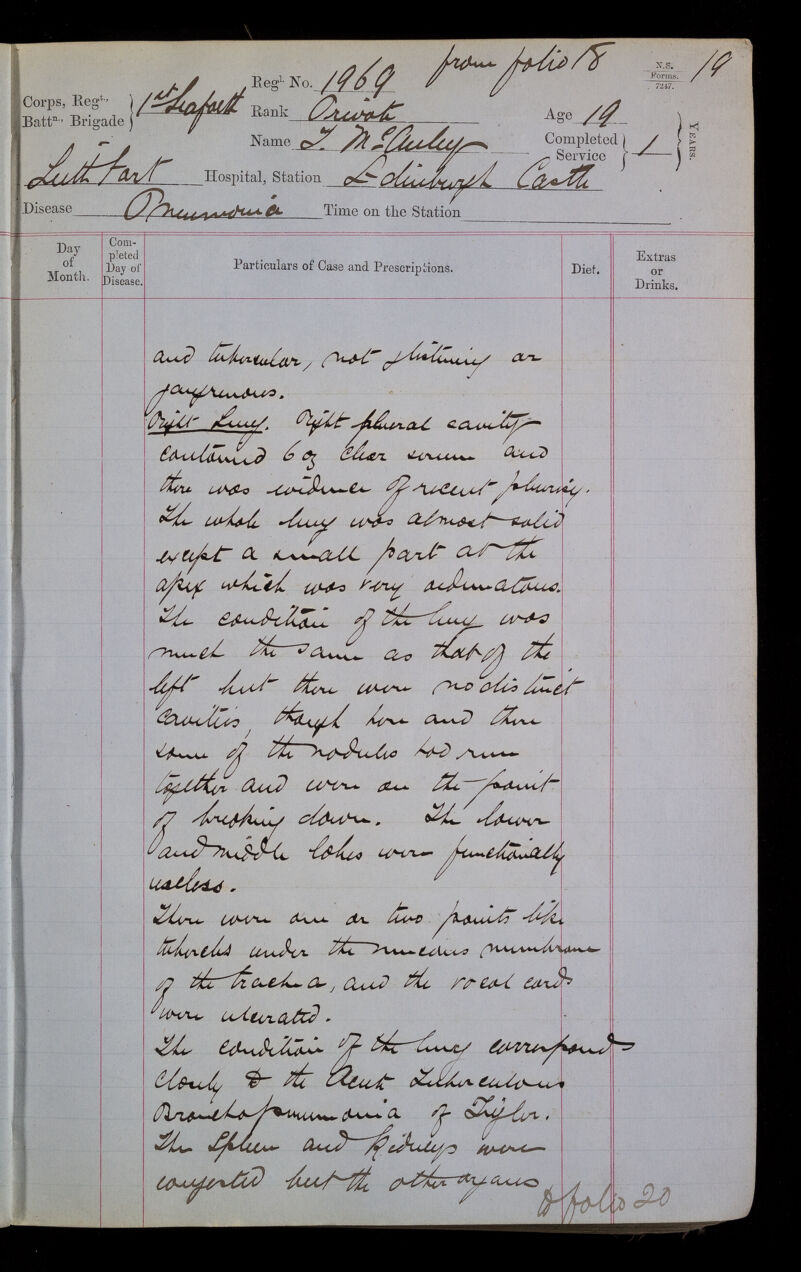 from folio 18
19
N.S.
Forms.
7247.
Corps, Regt.,
Battn., Brigade
1st Seaforth
Regl. No. 1969
Rank Private
Age 19
Name T. McAuley
Completed Service 1
YEARS.
Leith Fort Hospital, Station Edinburgh Castle
Disease Pneumonia Time on the Station
Day of Month.
Completed Day of Disease.
Particulars of Case and Prescriptions.
Diet.
Extras or Drinks.
and tubercular, not glistening or
gangrenous.
Right Lung. Right pleural cavity
contained 6 oz clear serum and
there was evidence of recent pleurisy.
The whole lung was almost solid
except a small part at the
apex which was very oedematous.
The condition of the lung was
much the same as that of the
left but there were no distinct
cavities, though here and there
some of the nodules had run
together and were on the point
of breaking down. The lower
and middle lobes were functionally
useless.
There were one or two points like
tubercles under the mucous membrane
of the trachea, and the vocal cords
were ulcerated.
The condition of the lung corresponds
closely to the Acute Tuberculous
Bronchopneumonia of Ziegler.
The Spleen and Kidneys were
congested but the other organs
to folio 20